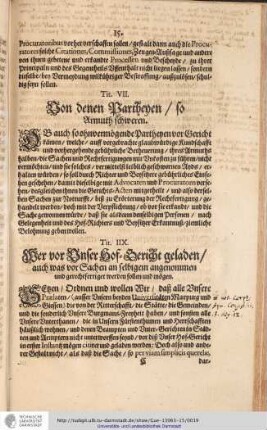 15.
Procuratoribus vorher verschaffen sollen / gestalt dann auch die Procuratores solche Citationes, Commissiones, Zeugen-Aussage und andere
von ihnen gebetene und erkandte Processen und Bescheide / zu ihrer
Principalen und des Gegentheils Versenkali nicht liegen lassen / sondern
dieselbe bey Vermeydung willkühriger Bestraffung / außzulösen / schuldig seyn sollen.
Tit. VII.
Von denen Partheyen / so
Armuth schweren.
OB auch so ohnvermögende Partheyen vor Gericht
kämen / welche / auff vorgebrachte glaubwürdige Kundschafft
und vorhergehende gebührliche Betheurung / ihrer Armuth
halben / die Sachen und Rechtfertigungen mit Unkosten zu führen nicht
vermöchten / und sie solches / vermittelst leiblich geschworenen Ayds / erhalten würden / so soll durch Richter und Beysitzere gebührliches Einsehen geschehen / damit dieselbige mit Advocaten und Procuratoren versehen / dergleichen ihnen die Gerichts-Acten mitgetheilt / und all derselben Sachen zur Notturfft / biß zu Erörterung der Rechtfertigung / gehandelt werden / doch mit der Verpflichtung / ob vor sie erkandt / und die
Sache gewonnen würde / daß sie alsdann denselbigen Personen / nach
Gelegenheit und des Hof-Richters und Beysitzer Erkantnuß / ziemliche
Belohnung geben wollen.
Tit. IIX.
Wer vor Unser Hof-Gericht geladen /
auch was vor Sachen an selbigem angenommen
und gerechtfertiget werden sollen und mögen.
SEtzen / Ordnen und wollen Wir / daß alle Unsere
Praelaten / (ausser Unsern beyden Universitäten Marpurg und
Giessen) die von der Ritterschafft / die Städte / die Gemeinden /
und die sonderlich Unsere Burgmanns-Freyheit haben / und sonsten alle
Unsere Unterthanen / die in Unsern Fürstenthumen und Herrschafften
häußlich wohnen / und denen Beampten und Unter-Gerichten in Städten und Aemptern nicht unterworffen seynd / vor daß Unser Hof-Gericht
in erster Instantz mögen citirt und geladen werden: Doch also und anderer Gestalt nicht / als daß die Sache / so per viam simplicis querelae,
http://tudigit.ulb.tu-darmstadt.de/show/Gue-11993-15/0019
Universitäts- und Landesbibliothek Darmstadt